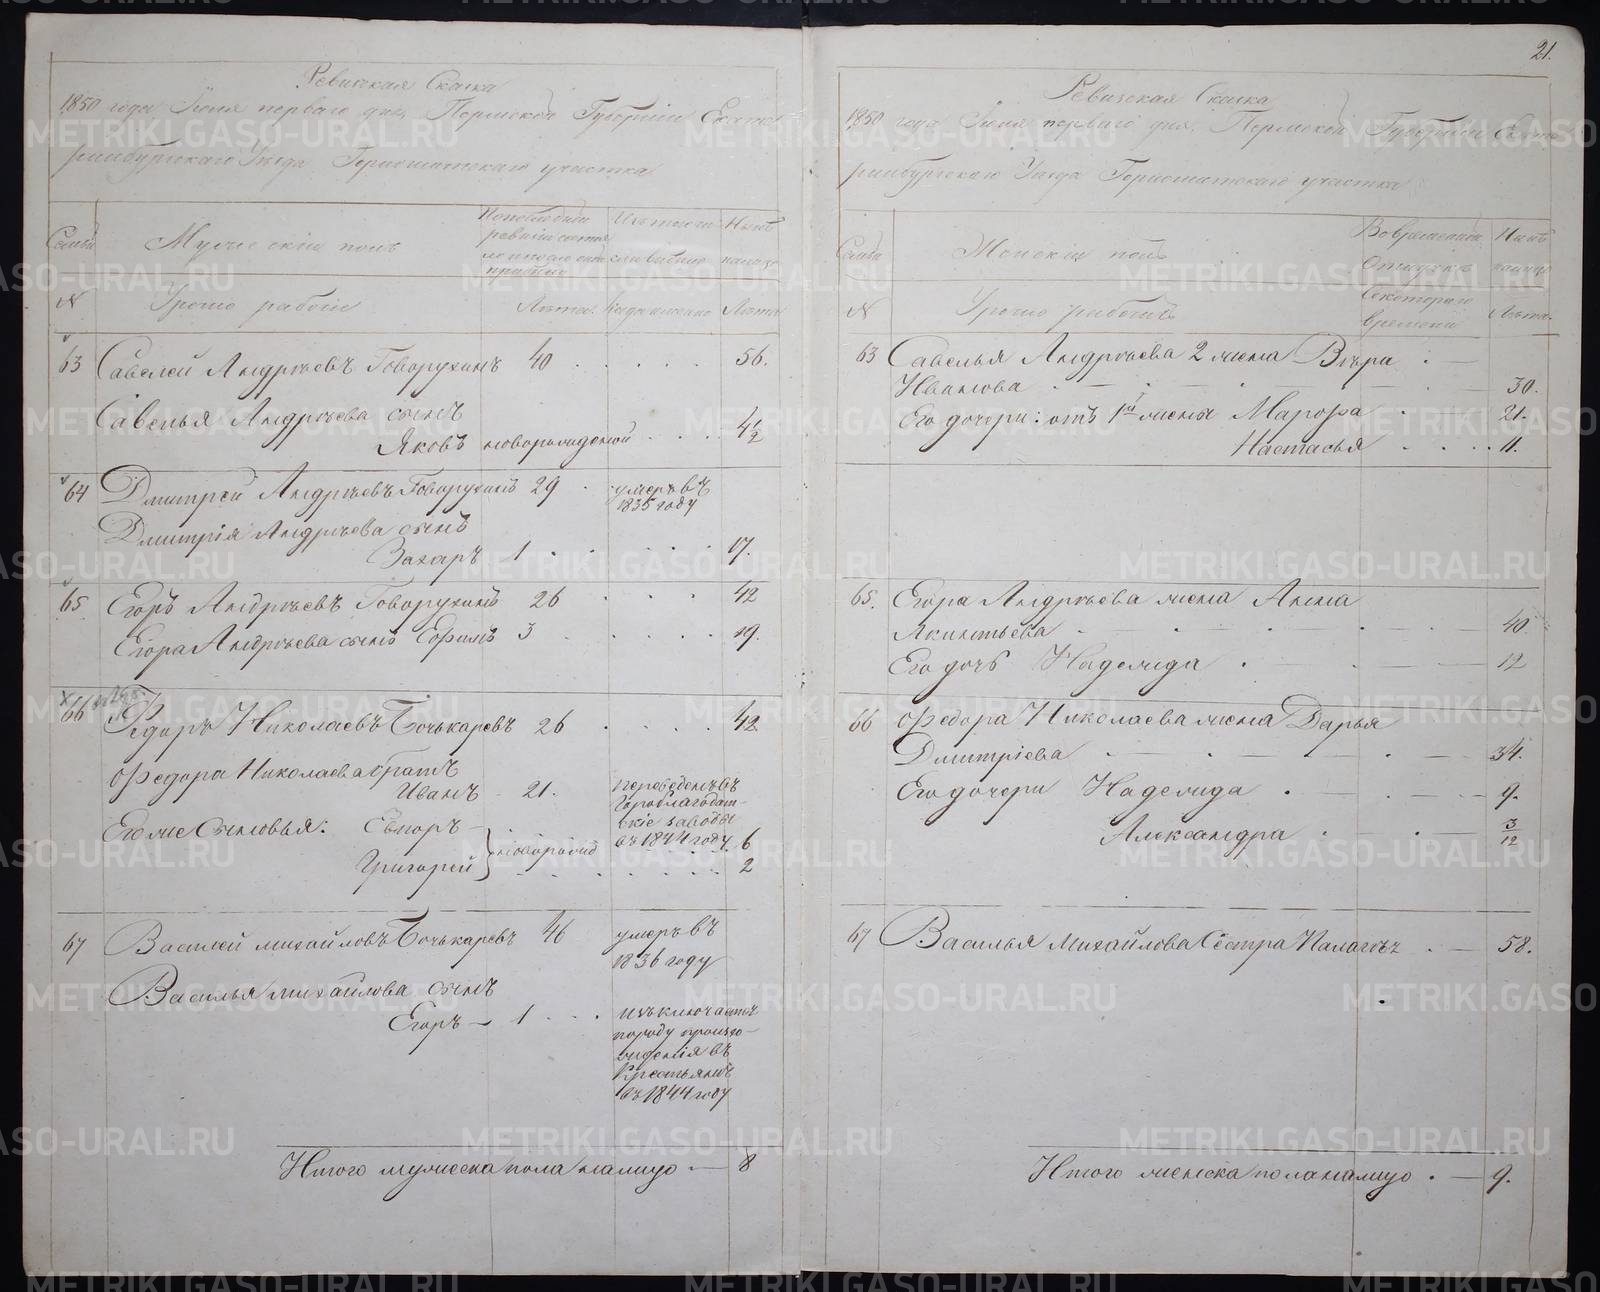 21.
Ревизская Сказка
1850 года Июня перваго дня, Пермской Губерніи Екате
ринбургскаго Уѣзда Горнощитскаго участка
Семьи
Мужескій полъ
По последней ревизіи состояло и послѣ оной прибыло
Изъ того числа выбыло
Нынѣ на лицо
№
Урочно рабочіе
Лѣта.
Когда именно
Лѣта
63 Савелей Андрѣевъ Говорухинъ 40 . . . . . 56.
Савелья Андрѣева сынъ
Яковъ новорожденой . . . . 4 1/2
64 Дмитрей Андрѣевъ Говорухинъ 29 . умеръ въ
1835 году
Дмитрія Андрѣева сынъ
Захаръ 1 . . . . . 17.
65 Егоръ Андрѣевъ Говорухинъ 26 . . . . 42
Егора Андрѣева сынъ Ефимъ 3 . . . . . 19.
66 Ѳедоръ Николаевъ Бочькаревъ 26 . . . . 42
Федора Николаева братъ
Иванъ - 21. переведенъ въ
Гороблагодат-
скіе заводы
въ 1844 году
Егоже Сыновья: Ѳѣдоръ новорожд 6
Григорей . . . . . . . 2
67 Василей Михайловъ Бочькаревъ 46 умеръ въ
1836 году
Василья Михайлова сынъ
Егоръ — 1 . . . изъключается
породу произхо-
жденія въ
Крестьянъ
въ 1844 году
Итого мужеска пола налицо . — 8
Ревизская Сказка
1850 года Июня перваго дня, Пермской Губерніи Екате
ринбургскаго Уѣзда Горнощитскаго участка
Семьи
Женскій полъ
Во временной Отлучкѣ
Нынѣ на лицо
№
Урочно рабочихъ
Съкотораго времени
Лѣта.
63 Савелья Андрѣева 2 жена Вѣра . —
Иванова . — . — . — 30.
Его дочери: отъ 1й жены Марфа . — 21.
Настасья . . . . 11.
65. Егора Андрѣева жена Анна
Якинтьева . — . — . — 40.
Его дочь Надежда . — . — 12
66 Федора Николаева жена Дарья
Дмитріева . — . — . — 34.
Его дочери Надежда . — . — 9.
Александра . . — 3/12
67 Василья Михайлова Сестра Палагѣя . — 58.
Итого женска пола налицо . — 9.
METRIKI.GASO-URAL.RU